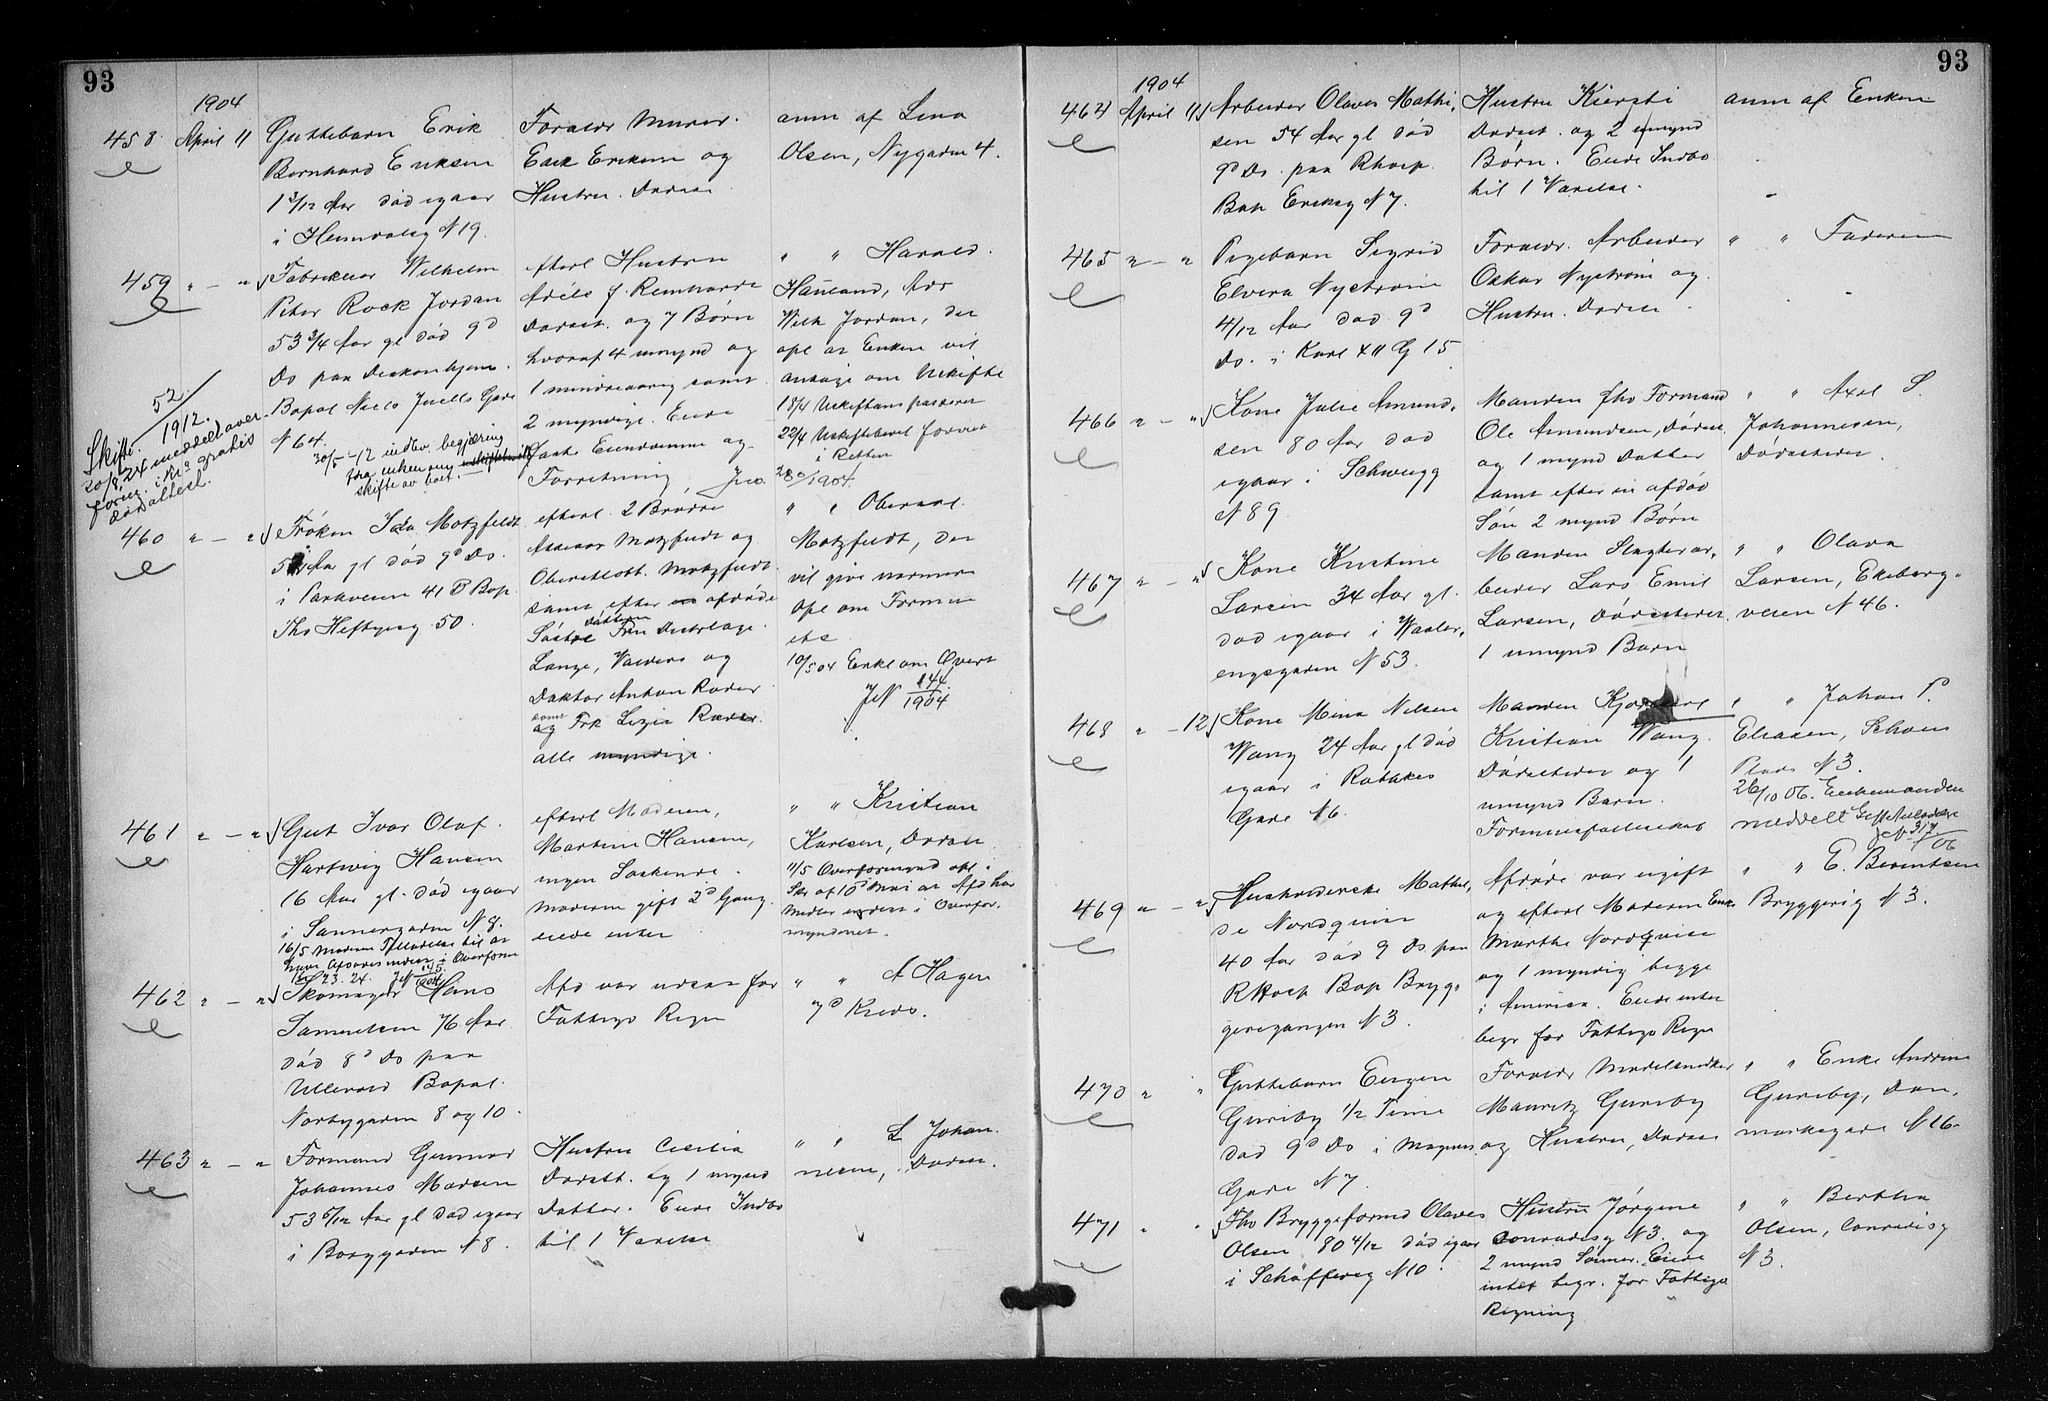 93
1904
458 April 11
Guttebarn Erik
Bernhard Eriksen
1 3/12 Aar død igaar
i Heimdalsg N 19.
Foræld Murer
Erik Eriksen og
Hustru. Dødsa
anm af Lina
Olsen, Nygaden 4.
459 " - "
Fabrikeier Wilhelm
Peter Rock Jordan
53 3/4 Aar gl død 9d
Ds paa Diakonhjem.
Bopæl Niels Juells Gade
N 64.
30/5-12 indlev. begjæring
fra enken om
skifte av boet.
efterl Hustru
Adéle f. Reinhardt
Dødsst. og 7 Børn
hvoraf 4 umynd og
1 mindreaarig samt
2 myndige. Eiede
faste Eiendomme og
Forretning
" " Harald
Hauland, Adr
Wilh Jordan, der
opl at Enken vil
ansøge om Uskifte
18/4
22/4 Uskiftebevil forevist
i Retten
1904.
52/1912.
Skifte
20/8.24 meddelt over
gratis
dødsattest.
460 " - "
Frøken Ida Motzfeldt
Aar gl død 9d Ds.
i Parkveien 41 B Bop.
Ths Heftyesg 50.
efterl. 2 Brødre
Assessor Motzfeldt og
Oberstløit. Motzfeldt
samt efter afdøde
Søstre
Lange, og
Doktor Anton Ræder
samt
og Frk Lizzie Ræder
alle myndige.
" " Oberstl.
Motzfeldt, der
vil give nærmere
opl om Formue
etc
10/5 04 Erkl om Overt
JN 144/1904.
461 " - "
Gut Ivar Olaf
Hartwig Hansen
16 Aar gl. død igaar
i Sannergaden N 9.
efterl Moderen,
Martine Hansen,
ingen Søskende.
Moderen gift 2d Gang.
eiede intet
" " Kristian
Karlsen, Dødsst
11/5 Overformynd opl i
Skr af 10d Mai at Afd har
Midler inde i Overfor-
mynderiet.
462 " - "
Skomager Hans
Samuelsen 76 Aar
død 8d Ds paa
Ullevold Bopæl.
Norbygaden 8 og 10.
Afd var under for
Fattigv Regn
" " A Hagen
7d Kreds.
463 " - "
Formand Gunnar
Johannes Madsen
53 5/12 Aar gl død igaar
i Borggaden N 8.
Hustru Cecilia
Dødsst. og 1 mynd
Datter. Eiede Indbo
til 1 Værelse
" " L Johan-
nesen, Dødsst.
93
1904
464 April 11
Arbeider Olaves Mathi-
sen 54 Aar gl død
9d Ds. paa Rhosp.
Bop Eriksg N 7.
Hustru Kiersti
Dødsst. og 2 umynd
Børn. Eiede Indbo
til 1 Værelse.
anm af Enken
465 " - "
Pigebarn Sigrid
Elvira Nystrøm
4/12 Aar død 9d
Ds. i Karl XII G 15
Foræld. Arbeider
Oskar Nystrøm og
Hustru. Dødsst
" " Faderen
466 " - "
Kone Julie Amund-
sen 80 Aar død
igaar i Schweigg
N 89
Manden fhv Formand
Ole Amundsen, Dødsst
og 1 mynd Datter
samt efter en afdød
Søn 2 mynd Børn
" " Axel S.
Johannesen,
Dødsstedet.
467 " - "
Kone Kristine
Larsen 34 Aar gl.
død igaar i Vaaler-
engsgaden N 53.
Manden Slagterar-
beider Lars Emil
Larsen, Dødsstedet.
1 umynd Barn
" " Olava
Larsen, Ekeberg-
veien N 46.
468 " - 12
Kone Mina Nilsen
Wang 24 Aar gl død
igaar i Rathkes
Gade N 6.
Manden
Kristian Wang.
Dødsstedet og 1
umynd Barn.
Formuesfællesskab
" " Johan P
Eliasen, Schous
Plads N 3.
26/10 06. Enkemanden
meddelt
06
469 " - "
Husholderske Mathil-
de Nordqvist
40 Aar død 9 Ds paa
RHosp Bop Bryg-
gerigangen N 3.
Afdøde var ugift
og efterl Moderen Enke
Marthe Nordqvist
og 1 myndig begge
i Amerika. Eiede intet
begr for Fattigv Regn
" " E. Berntsen
Bryggerig N 3.
470 " "
Guttebarn Eugen
Guriby 1/2 Time
død 9d Ds i Mogens
Gade N 7.
Foræld Modelsnedker
Mauritz Guriby
og Hustru, Dødsst
" " Enke Andrine
Guriby, Dan-
marksgade N 16.
471 " "
Fhv Bryggeformd Olaves
Olsen 80 4/12 død igaar
i Schäffersg N 10.
Hustru Jørgine
Conradisg N 3. og
2 mynd Sønner. Eiede
intet begr. for Fattigv
Regning
" " Bertha
Olsen, Conradisg
N 3.